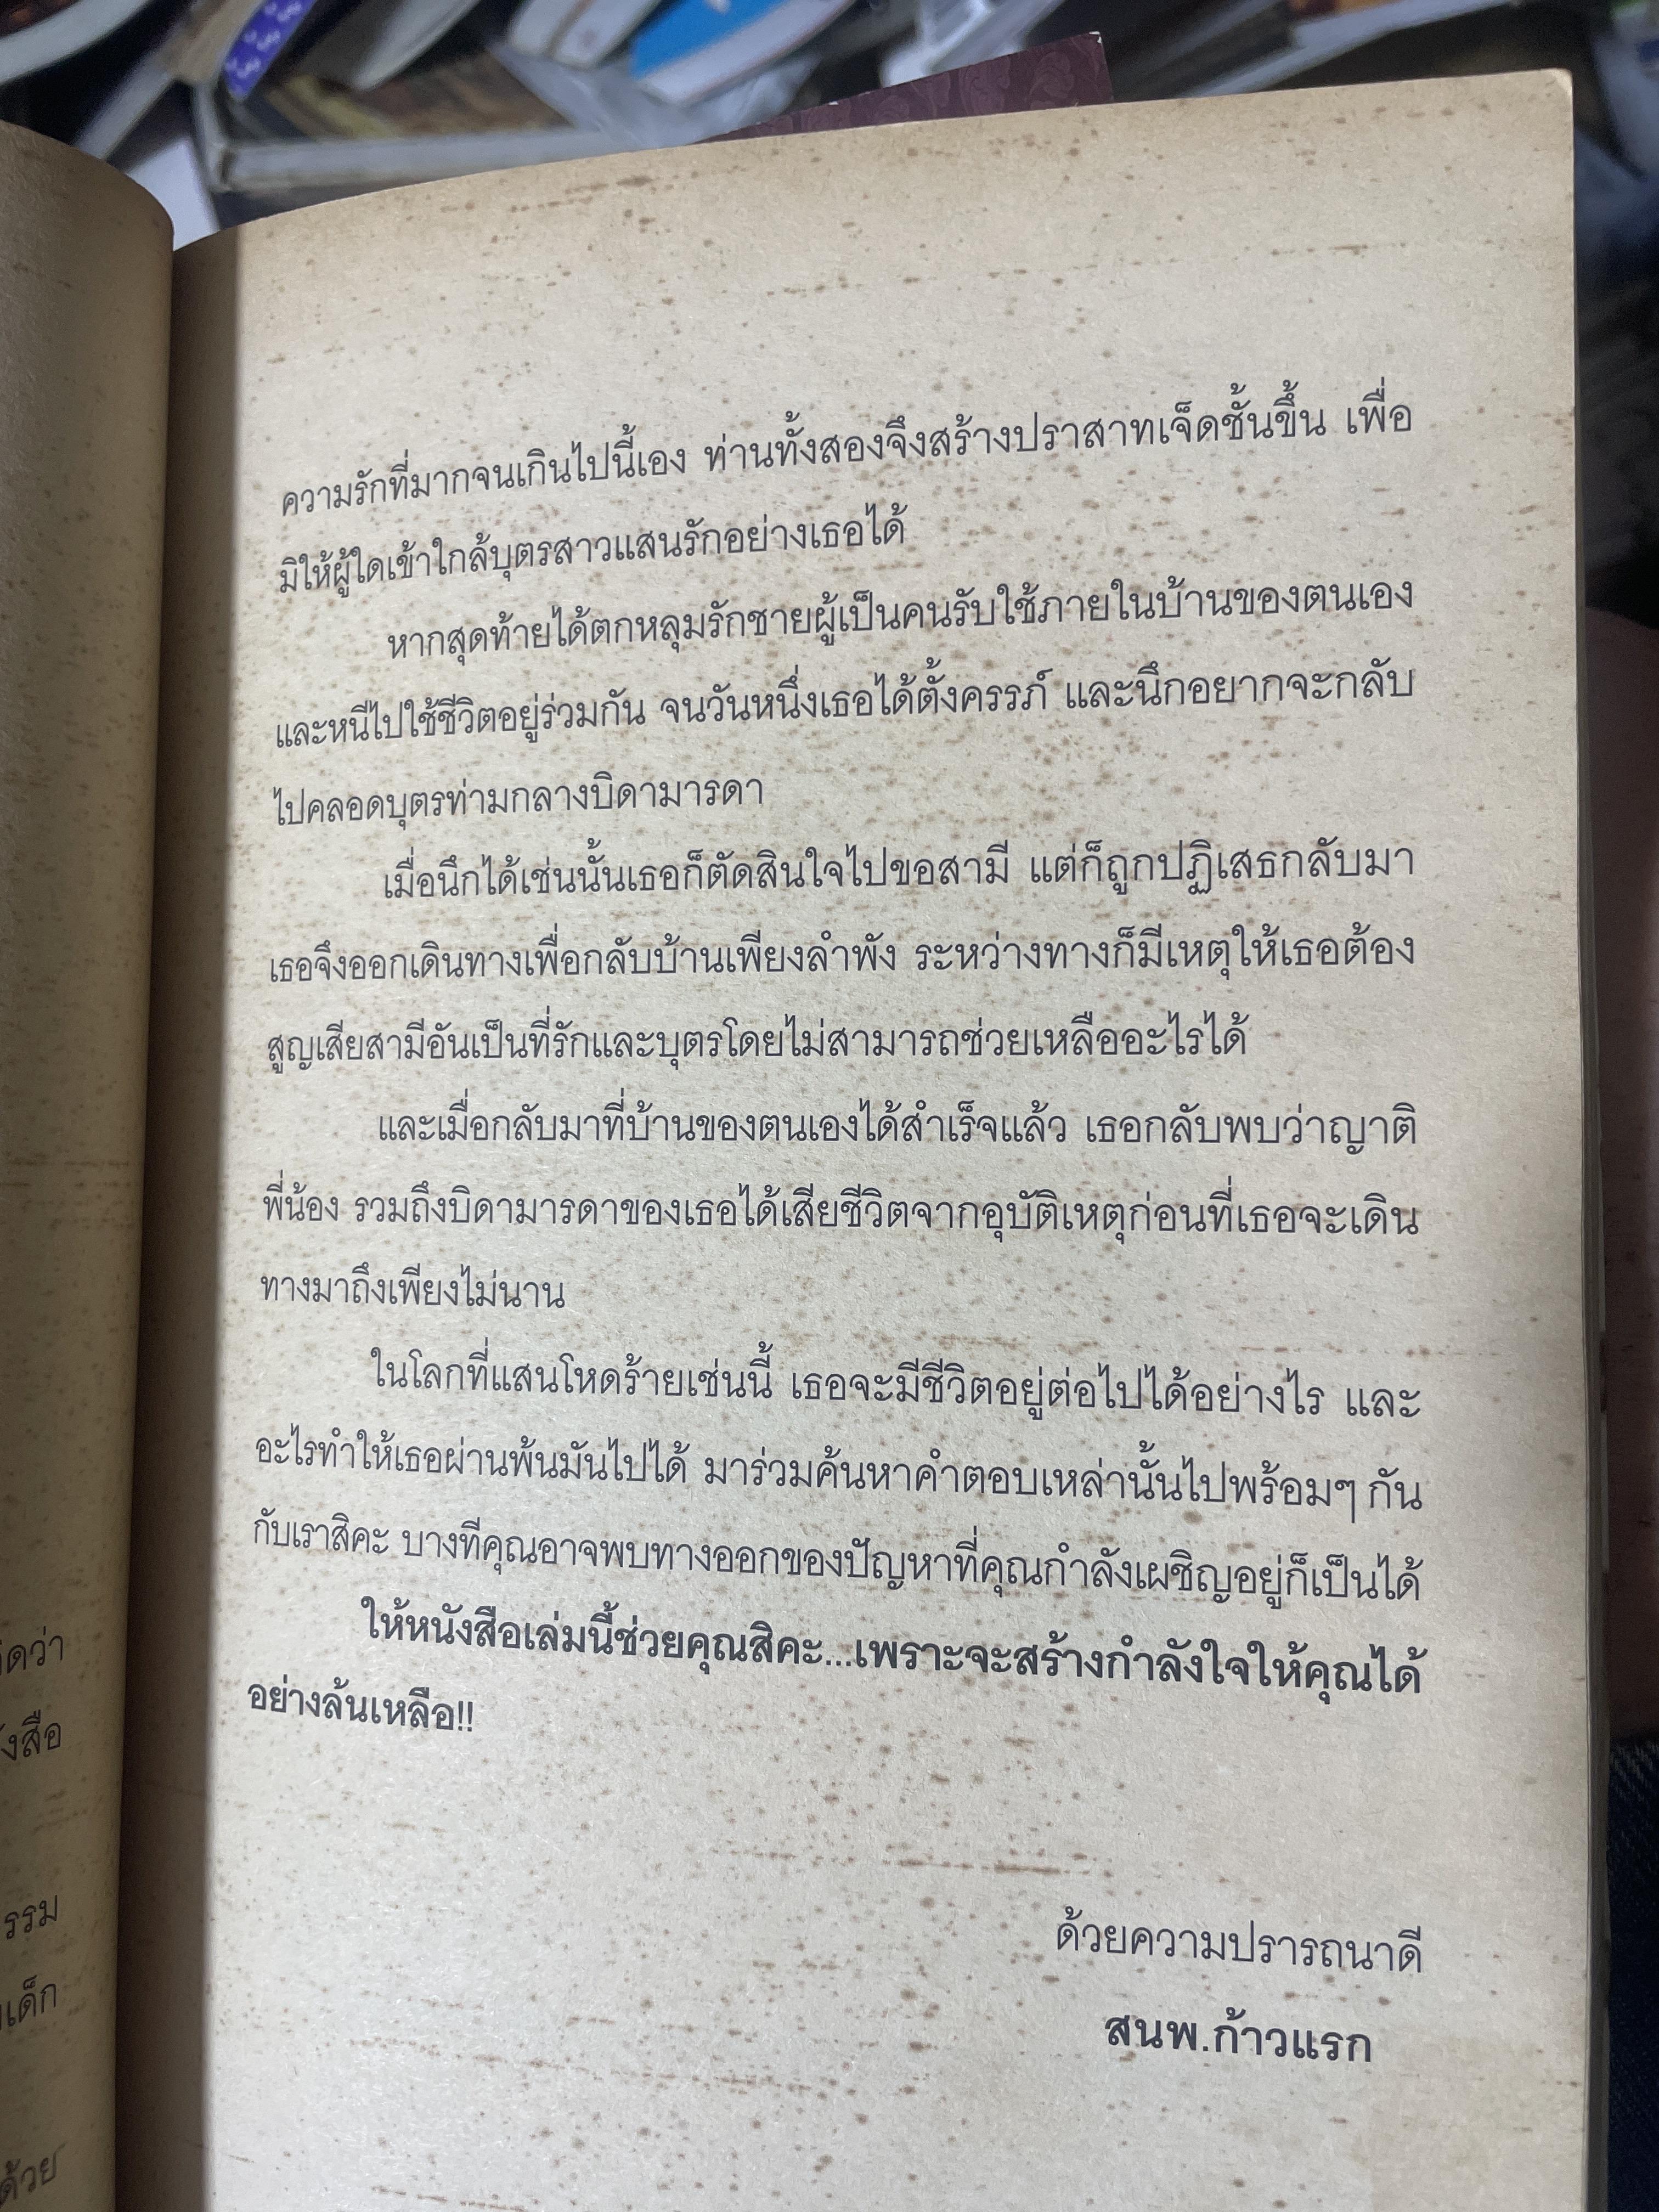 ดว่า
งสือ
รรม
เด็ก
ด้วย
ความรักที่มากจนเกินไปนี้เอง ท่านทั้งสองจึงสร้างปราสาทเจ็ดชั้นขึ้น เพื่อ
มิให้ผู้ใดเข้าใกล้บุตรสาวแสนรักอย่างเธอได้
หากสุดท้ายได้ตกหลุมรักชายผู้เป็นคนรับใช้ภายในบ้านของตนเอง
และหนีไปใช้ชีวิตอยู่ร่วมกัน จนวันหนึ่งเธอได้ตั้งครรภ์ และนึกอยากจะกลับ
ไปคลอดบุตรท่ามกลางบิดามารดา
เมื่อนึกได้เช่นนั้นเธอก็ตัดสินใจไปขอสามี แต่ก็ถูกปฏิเสธกลับมา
เธอจึงออกเดินทางเพื่อกลับบ้านเพียงลำพัง ระหว่างทางก็มีเหตุให้เธอต้อง
สูญเสียสามีอันเป็นที่รักและบุตรโดยไม่สามารถช่วยเหลืออะไรได้
และเมื่อกลับมาที่บ้านของตนเองได้สำเร็จแล้ว เธอกลับพบว่าญาติ
พี่น้อง รวมถึงบิดามารดาของเธอได้เสียชีวิตจากอุบัติเหตุก่อนที่เธอจะเดิน
ทางมาถึงเพียงไม่นาน
ในโลกที่แสนโหดร้ายเช่นนี้ เธอจะมีชีวิตอยู่ต่อไปได้อย่างไร และ
อะไรทำให้เธอผ่านพ้นมันไปได้ มาร่วมค้นหาคำตอบเหล่านั้นไปพร้อมๆ กัน
กับเราสิคะ บางทีคุณอาจพบทางออกของปัญหาที่คุณกำลังเผชิญอยู่ก็เป็นได้
ให้หนังสือเล่มนี้ช่วยคุณสิคะ...เพราะจะสร้างกำลังใจให้คุณได้
อย่างล้นเหลือ!!
ด้วยความปรารถนาดี
สนพ.ก้าวแรก